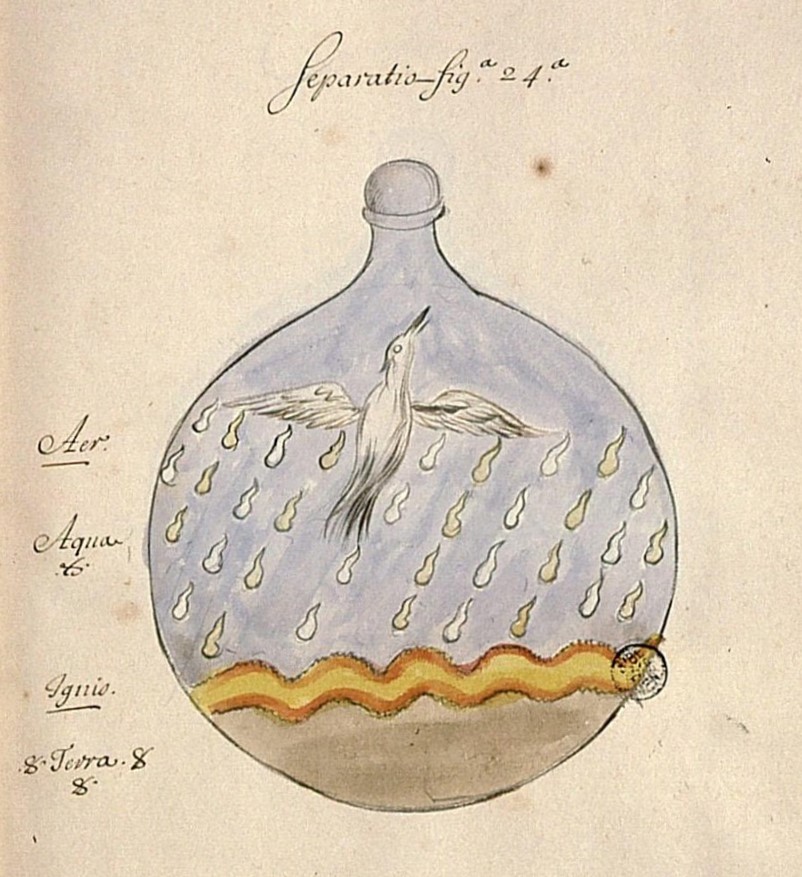 Separatio fig.ª 24.ª
Aer.
Aqua
Ignis.
Terra.